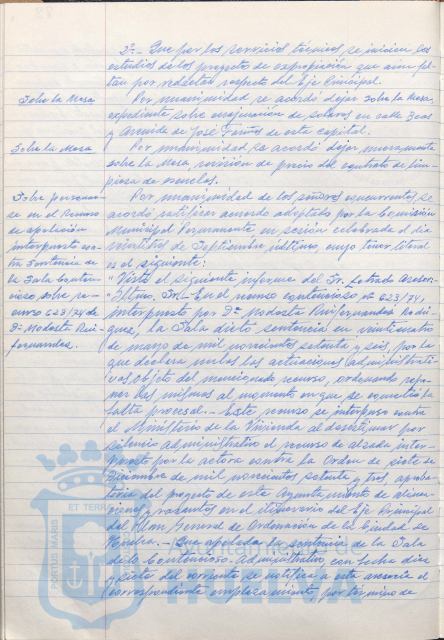 2º.- Que por los servicios técnicos se inicien los
estudios de los proyectos de expropiación que aún fal-
tan por redactar respecto del Eje Principal.
Sobre la Mesa
Por unanimidad se acordó dejar sobre la Mesa,
expediente sobre enajenación de solares en calle
y Avenida de José de esta capital.
Sobre la Mesa
Por unanimidad, se acordó dejar nuevamente
sobre la Mesa, revisión de precio del contrato de lim-
pieza de escuelas.
Sobre personar-
se en el Recurso
de apelación
interpuesto con-
tra Sentencia de
la Sala Conten-
cioso sobre re-
curso 623/74 de
Dª Modesta Rui-
fernandez.
Por unanimidad de los señores concurrentes, se
acordó ratificar acuerdo adoptado por la Comisión
Municipal Permanente en sesión celebrada el dia
de Septiembre último, cuyo tenor literal
es el siguiente:
"Visto el siguiente informe del Sr. Letrado Asesor:-
"Iltmo. Sr.- En el recurso contencioso nº 623/74,
interpuesto por Dª Modesta Ruifernandez Rodri-
guez, la Sala dictó sentencia en veinticuatro
de marzo de mil novecientos setenta y seis por la
que declara nulas las actuaciones administrati-
vas objeto del mencionado recurso, ordenando repo-
ner las mismas al momento en que se cometió la
falta procesal.- Este recurso se interpuso contra
el Ministerio de la Vivienda al desestimar por
silencio administrativo el recurso de alzada inter-
puesto por la actora contra la Orden de siete de
Diciembre de mil novecientos setenta y tres, aproba-
toria del proyecto de este Ayuntamiento de aliena-
ciones y rasantes en el itinerario del Eje Principal
del Plan General de Ordenación de la Ciudad de
Huelva.- Que apelada la sentencia de la Sala
de lo Contencioso-Administrativo, con fecha diez
y siete del corriente se notifica a esta asesoría el
correspondiente emplazamiento, por término de
PORTUS MARIS
ET TERRA
Ayuntamiento de
HUELVA